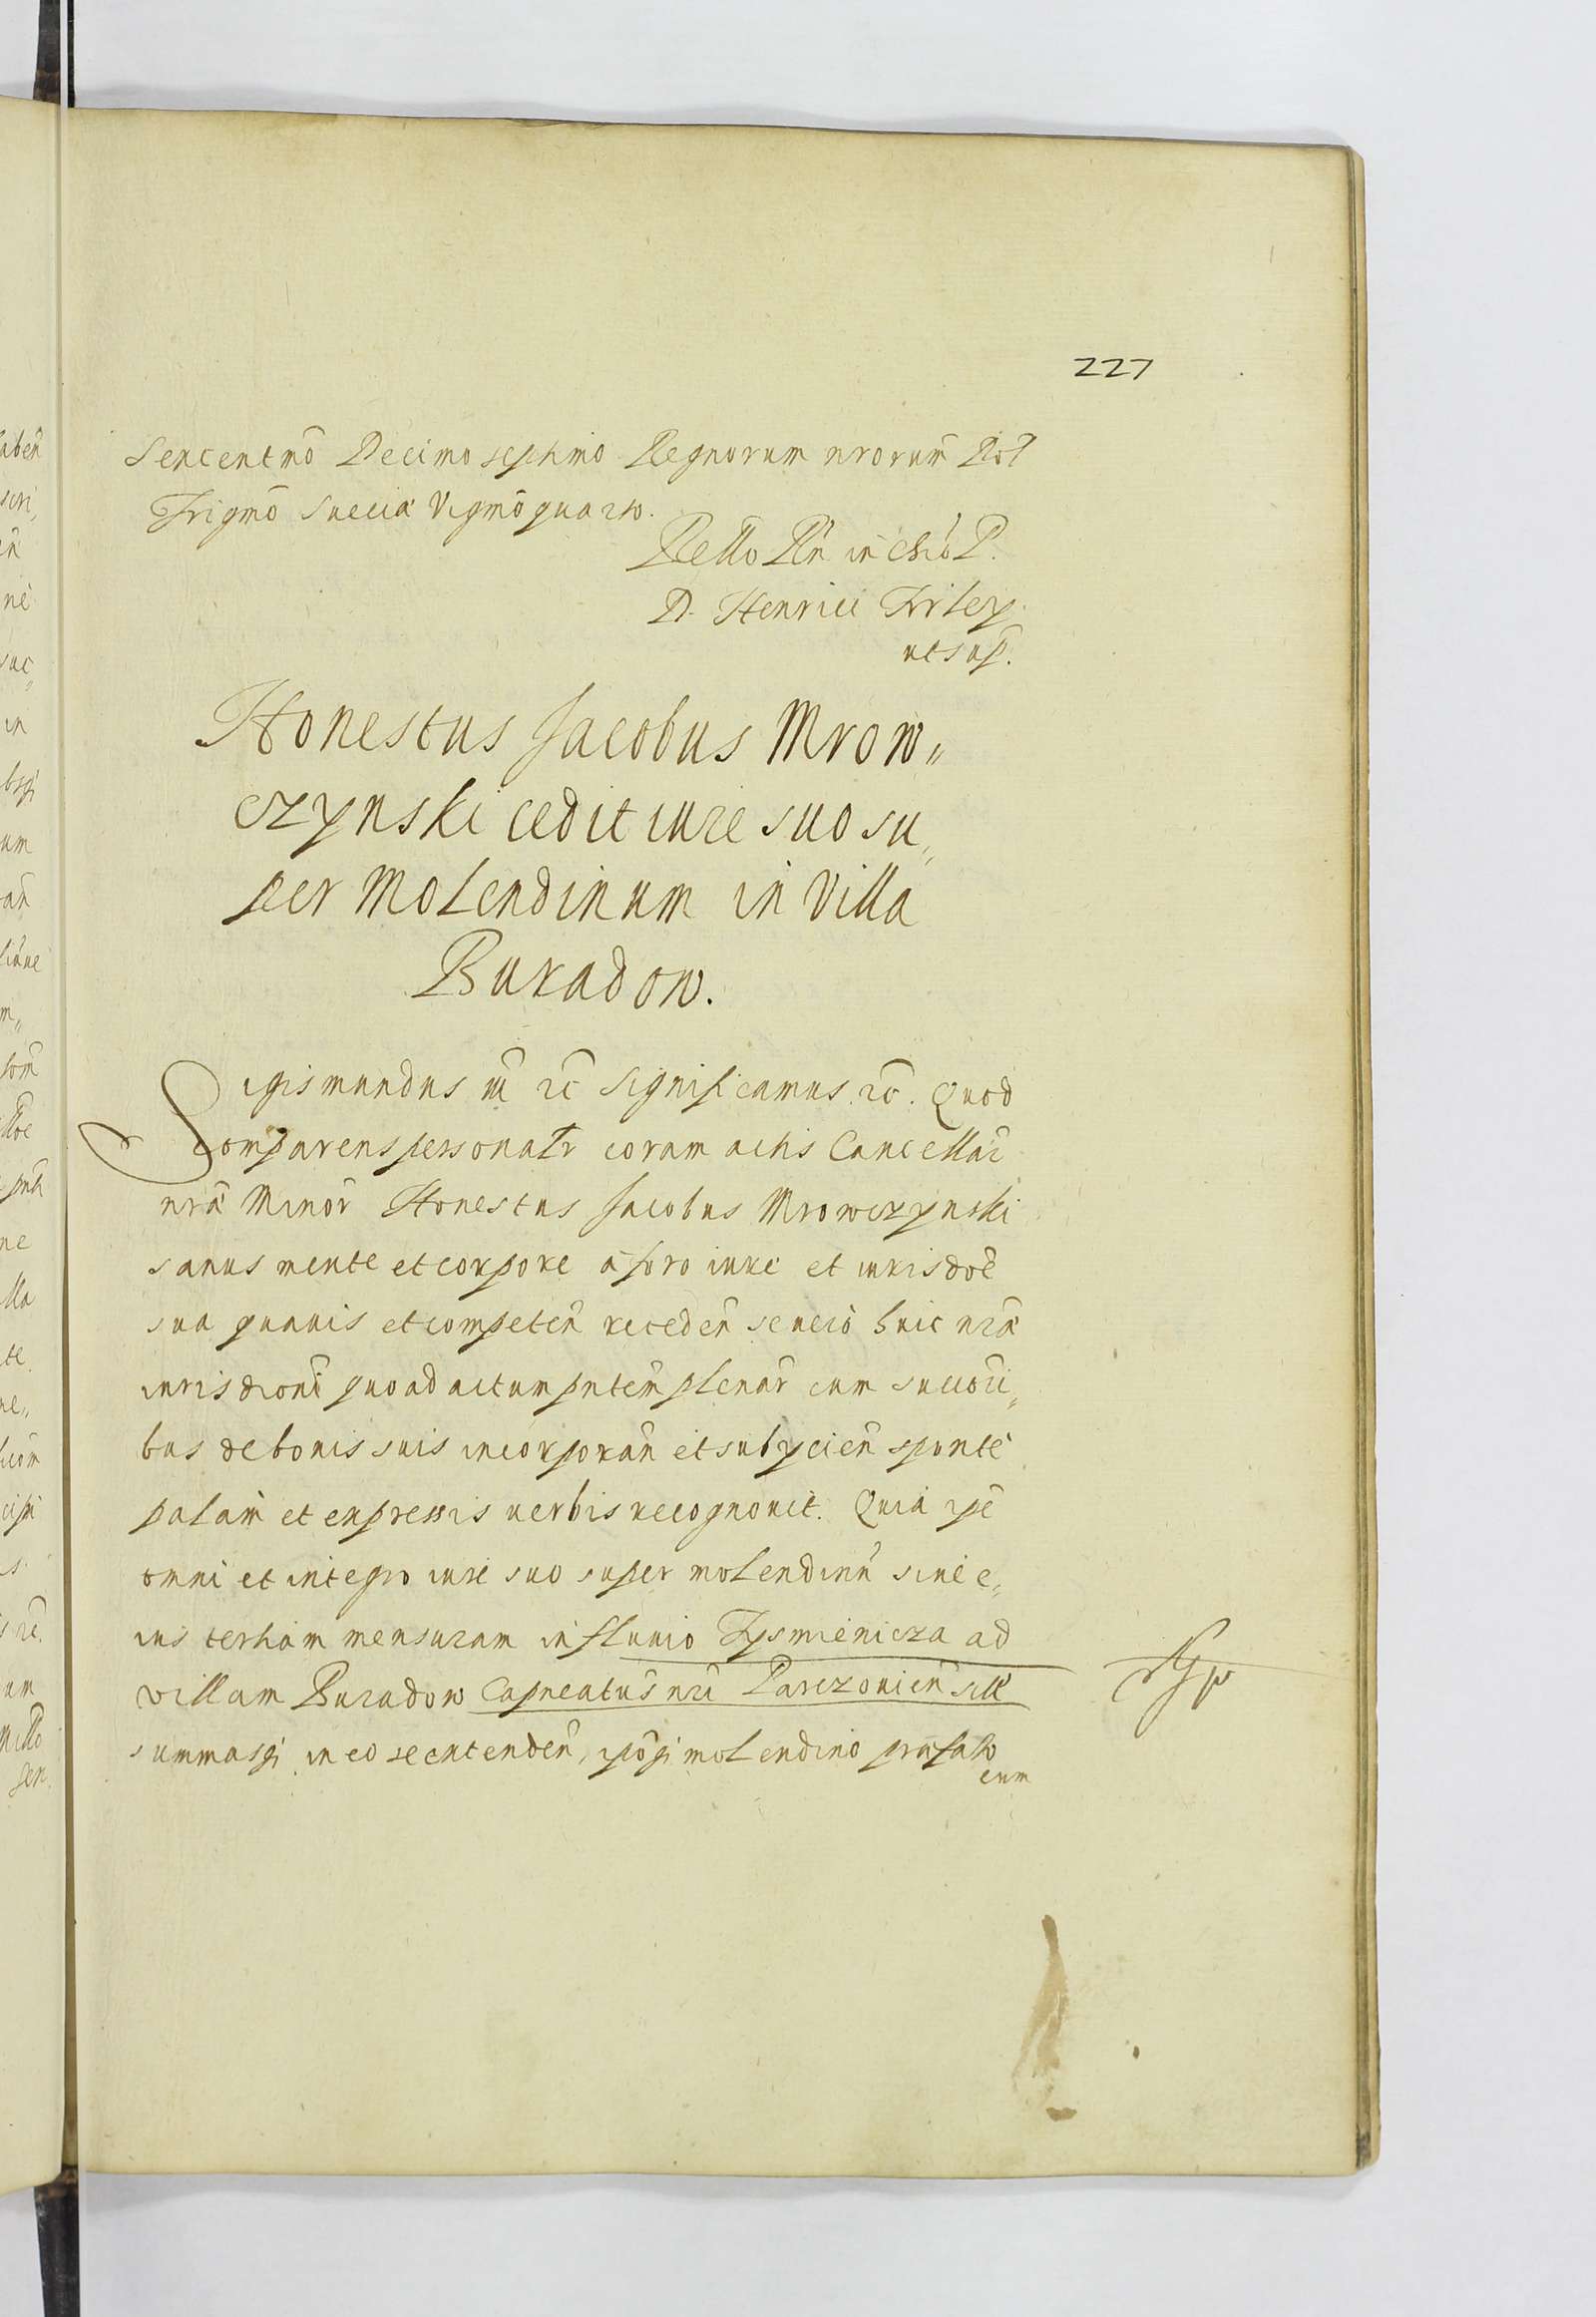 227
Sexcentmo Decimo septimo Regnorum nrorum Pol
Trigmo Sueciæ Vigmo quarto.
Rello Rn in Chro P.
D. Henrici Firley
ut sup.
Honestus Jacobus Mrow„
czynski cedit iure suo su„
per Molendinum in Villa
Buradow.
Sigismundus III rc Significamus rc. Quod
Comparens personalr coram actis Cancellar
nræ Minor Honestus Jacobus Mrowczynski
sanus mente et corpore a foro iure et iurisdoe
sua quauis et competen receden seuero huic nræ
iurisdioni quo ad actum pntem plenar cum succori„
bus de bonis suis incorporan et subycien sponte
palam et expressis uerbis recognouit. Quia ipe
omni et integro iure suo super molendinu siue e„
ius tertiam mensuram in fluuio Tysmienicza ad
villam Buradow Capneatus nri Parczouien sitt
summasqi in eo se extenden, ipoqi molendino præfato
cum